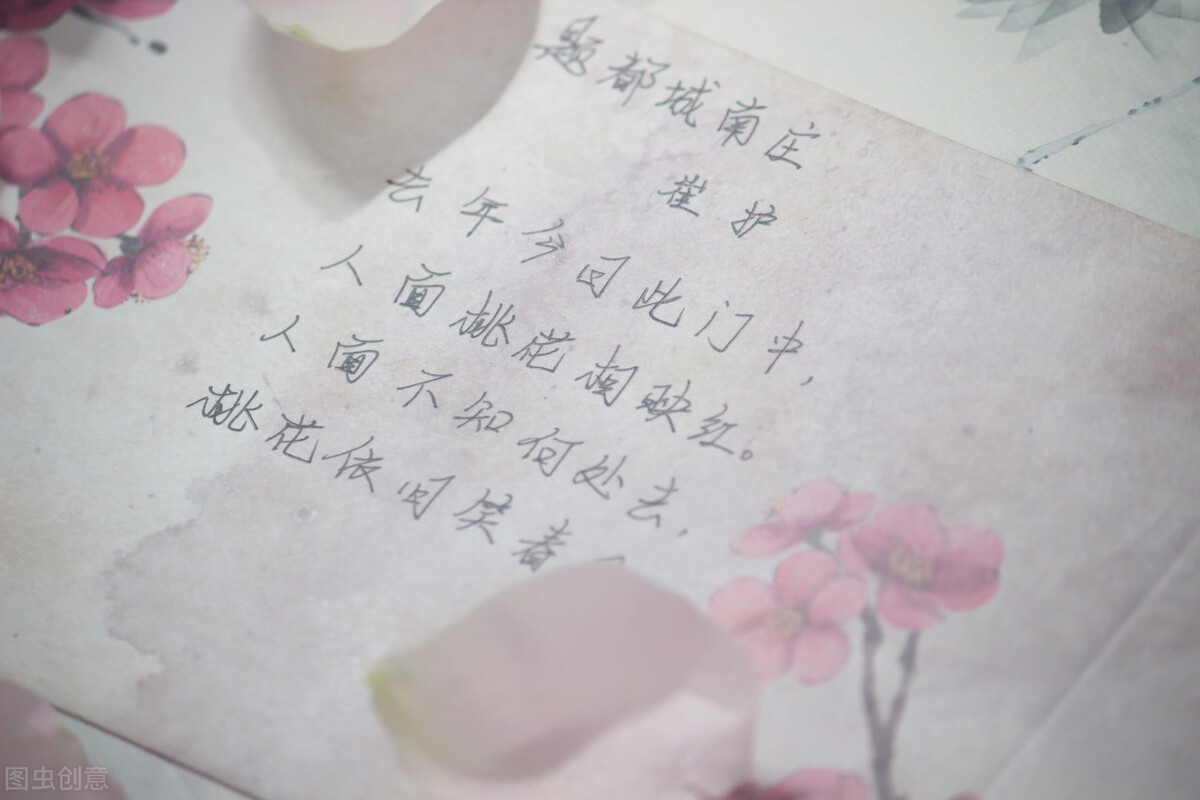 题都城南庄
崔护
去年今日此门中，
人面桃花相映红。
人面不知何处去，
桃花依旧笑春
图虫创意